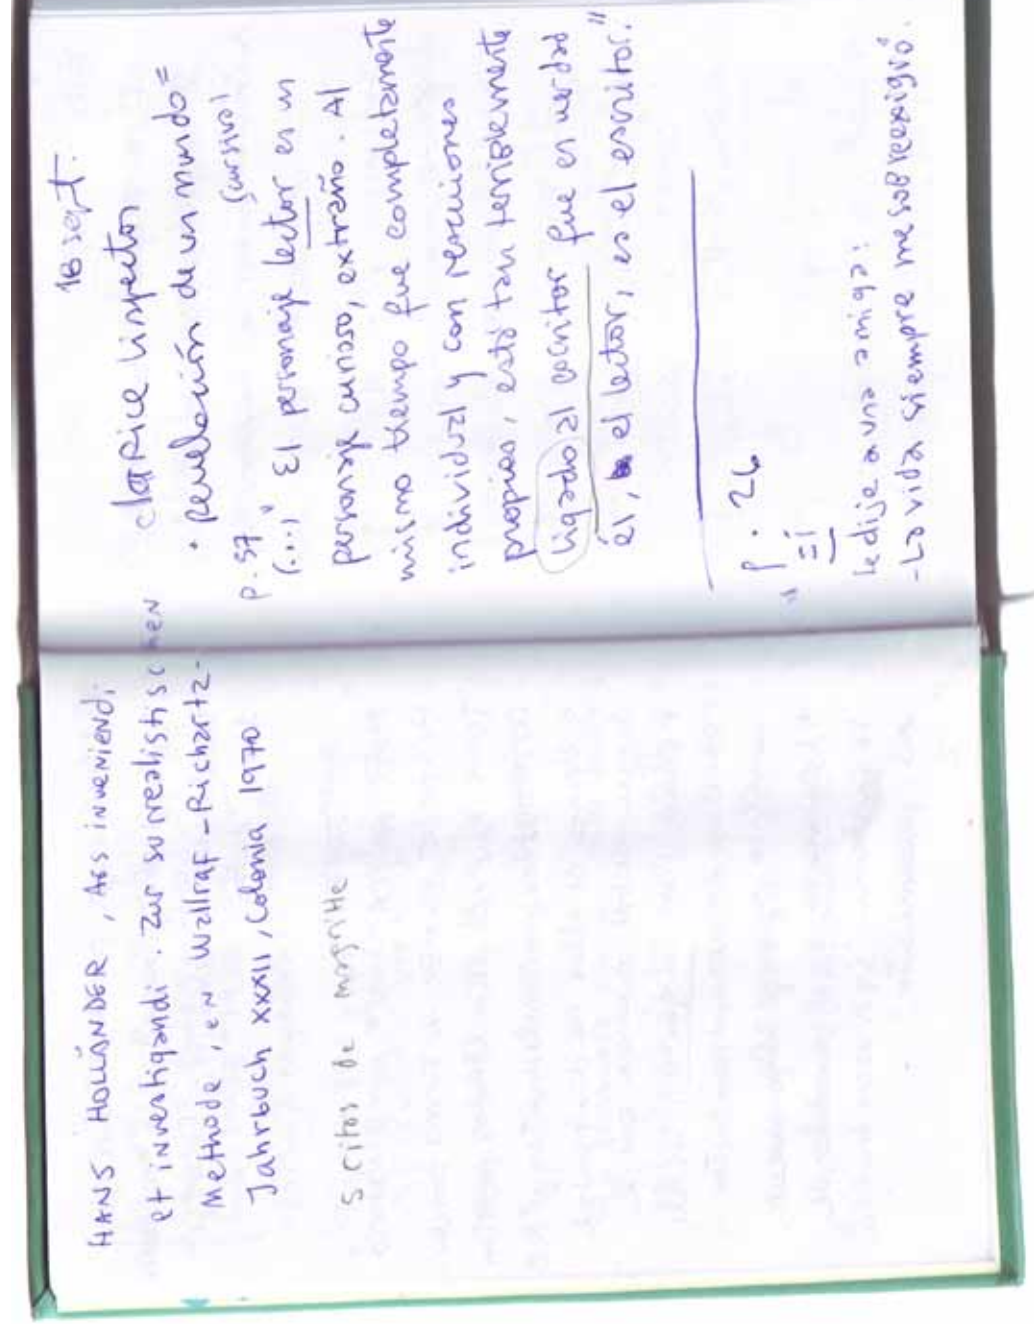 HANS HOLLÄNDER, Ars inveniendi
et investigandi. Zur surrealistischen
Methode, en Wallraf-Richartz-
Jahrbuch XXXII, Colonia 1970.
5 citas de Magritte
18 sept.
Clarice Lispector
• Revelación de un mundo =
p. 57 (cursiva!
(...) " El personaje lector es un
personaje curioso, extraño. Al
mismo tiempo que completamente
individual y con reacciones
propias, está tan terriblemente
ligado al escritor que en verdad
él, el lector, es el escritor."
p. 26
" Sí
le dije a una amiga:
- La vida siempre me sobreexigió.